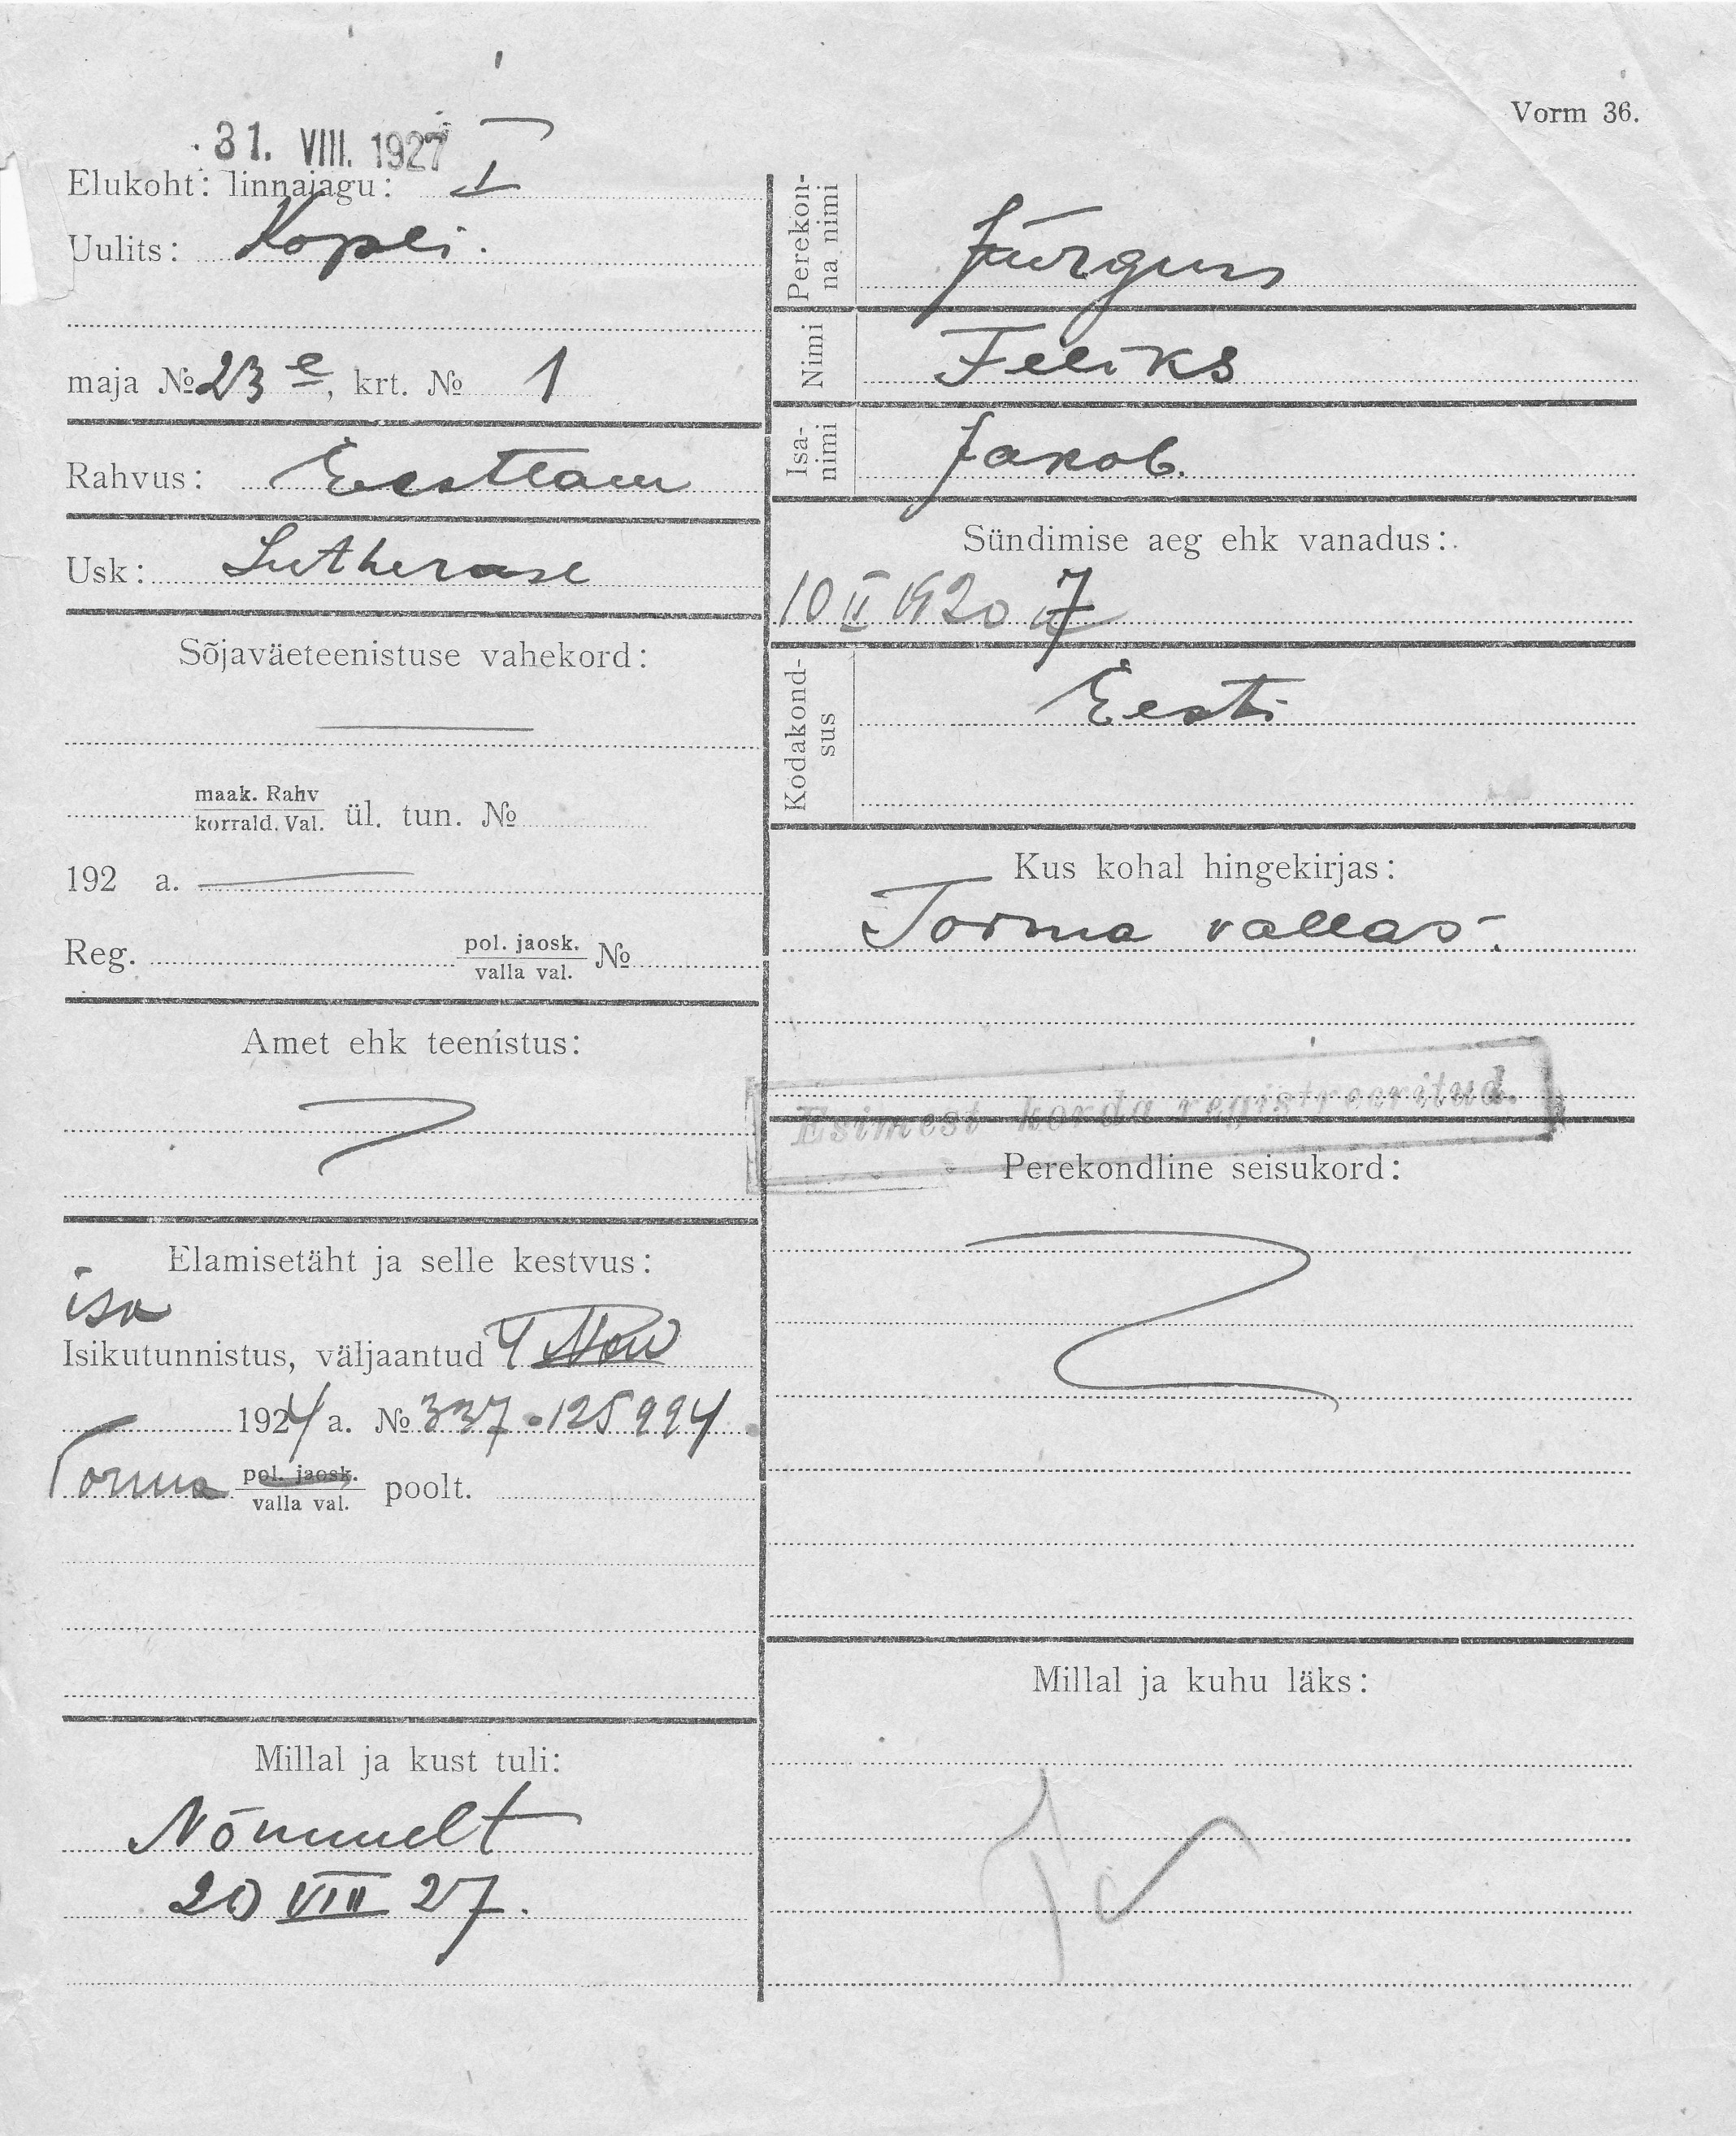 Vorm 36.
31. VIII. 1927
Elukoht: linnajagu: I
Uulits: Kopli.
maja № 23 e, krt. № 1
Rahvus: Eestlane
Usk: Lutheruse
Sõjaväeteenistuse vahekord:
maak. Rahv
korrald. Val. ül. tun. №
192 a.
Reg. pol. jaosk.
valla val. №
Amet ehk teenistus:
Elamisetäht ja selle kestvus:
isa
Isikutunnistus, väljaantud 4 Now
1924 a. № 337 125994
Torma pol. jaosk.
valla val. poolt.
Millal ja kust tuli:
Nõmmelt
20 VIII 27.
Perekon-
na nimi
Jürgens
Nimi
Feliks
Isa-
nimi
Jakob.
Sündimise aeg ehk vanadus:
10 II 1920 7
Kodakond-
sus
Eesti
Kus kohal hingekirjas:
Torma vallas.
Esimest korda registreeritud.
Perekondline seisukord:
Millal ja kuhu läks: